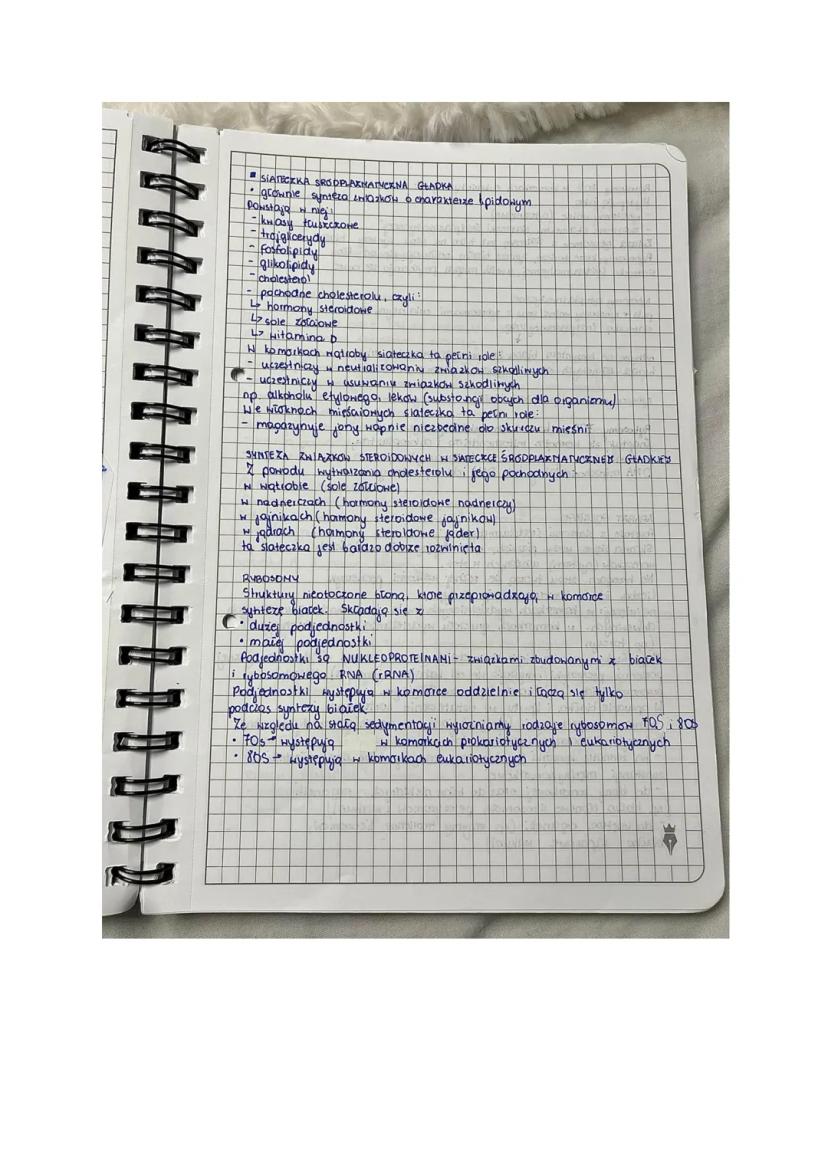 ▪ SIATECZKA ŚRÓDPLAZMATYCZNA GŁADKA
• głównie synteza związków o charakterze lipidowym
Powstają w niej:
- kwasy tłuszczowe
- trójglicerydy
- fosfolipidy
- glikolipidy
- cholesterol
- pochodne cholesterolu, czyli:
↳ hormony steroidowe
↳ sole żółciowe
↳ witamina D
W komórkach wątroby siateczka ta pełni role:
- uczestniczy w neutralizowaniu związków szkodliwych
- uczestniczy w usuwaniu związków szkodliwych
np. alkoholu etylowego, leków (substancji obcych dla organizmu)
We włóknach mięśniowych siateczka ta pełni role:
- magazynuje jony wapnie niezbędne do skurczu mięśni
SYNTEZA ZWIĄZKÓW STEROIDOWYCH W SIATECZCE ŚRÓDPLAZMATYCZNEJ GŁADKIEJ
Z powodu wytwarzania cholesterolu i jego pochodnych:
w wątrobie (sole żółciowe)
w nadnerczach (hormony steroidowe nadnerczy)
w jajnikach (hormony steroidowe jajników)
w jądrach (hormony steroidowe jąder)
ta siateczka jest bardzo dobrze rozwinięta
RYBOSOMY
Struktury nieotoczone błoną, które przeprowadzają w komórce
syntezę białek. Składają się z
• dużej podjednostki
• małej podjednostki
Podjednostki są NUKLEOPROTEINAMI - związkami zbudowanymi z białek
i rybosomowego RNA (rRNA)
Podjednostki występują w komórce oddzielnie i łączą się tylko
podczas syntezy białek
Ze względu na stałą sedymentacji wyróżniamy rodzaje rybosomów 70S i 80S
• 70s → występują w komórkach prokariotycznych i eukariotycznych
• 80S → występują w komórkach eukariotycznych